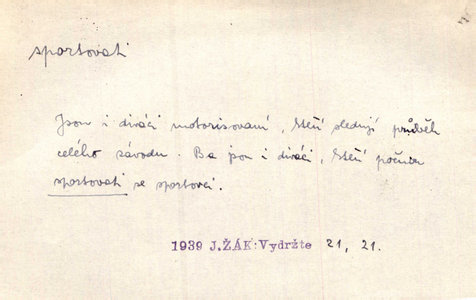 sportovati
Jsou i diváci motorisovaní, kteří sledují průběh
celého závodu. Ba jsou i diváci, kteří počnou
sportovati se sportovci.
1939 J.ŽÁK:Vydržte 21, 21.